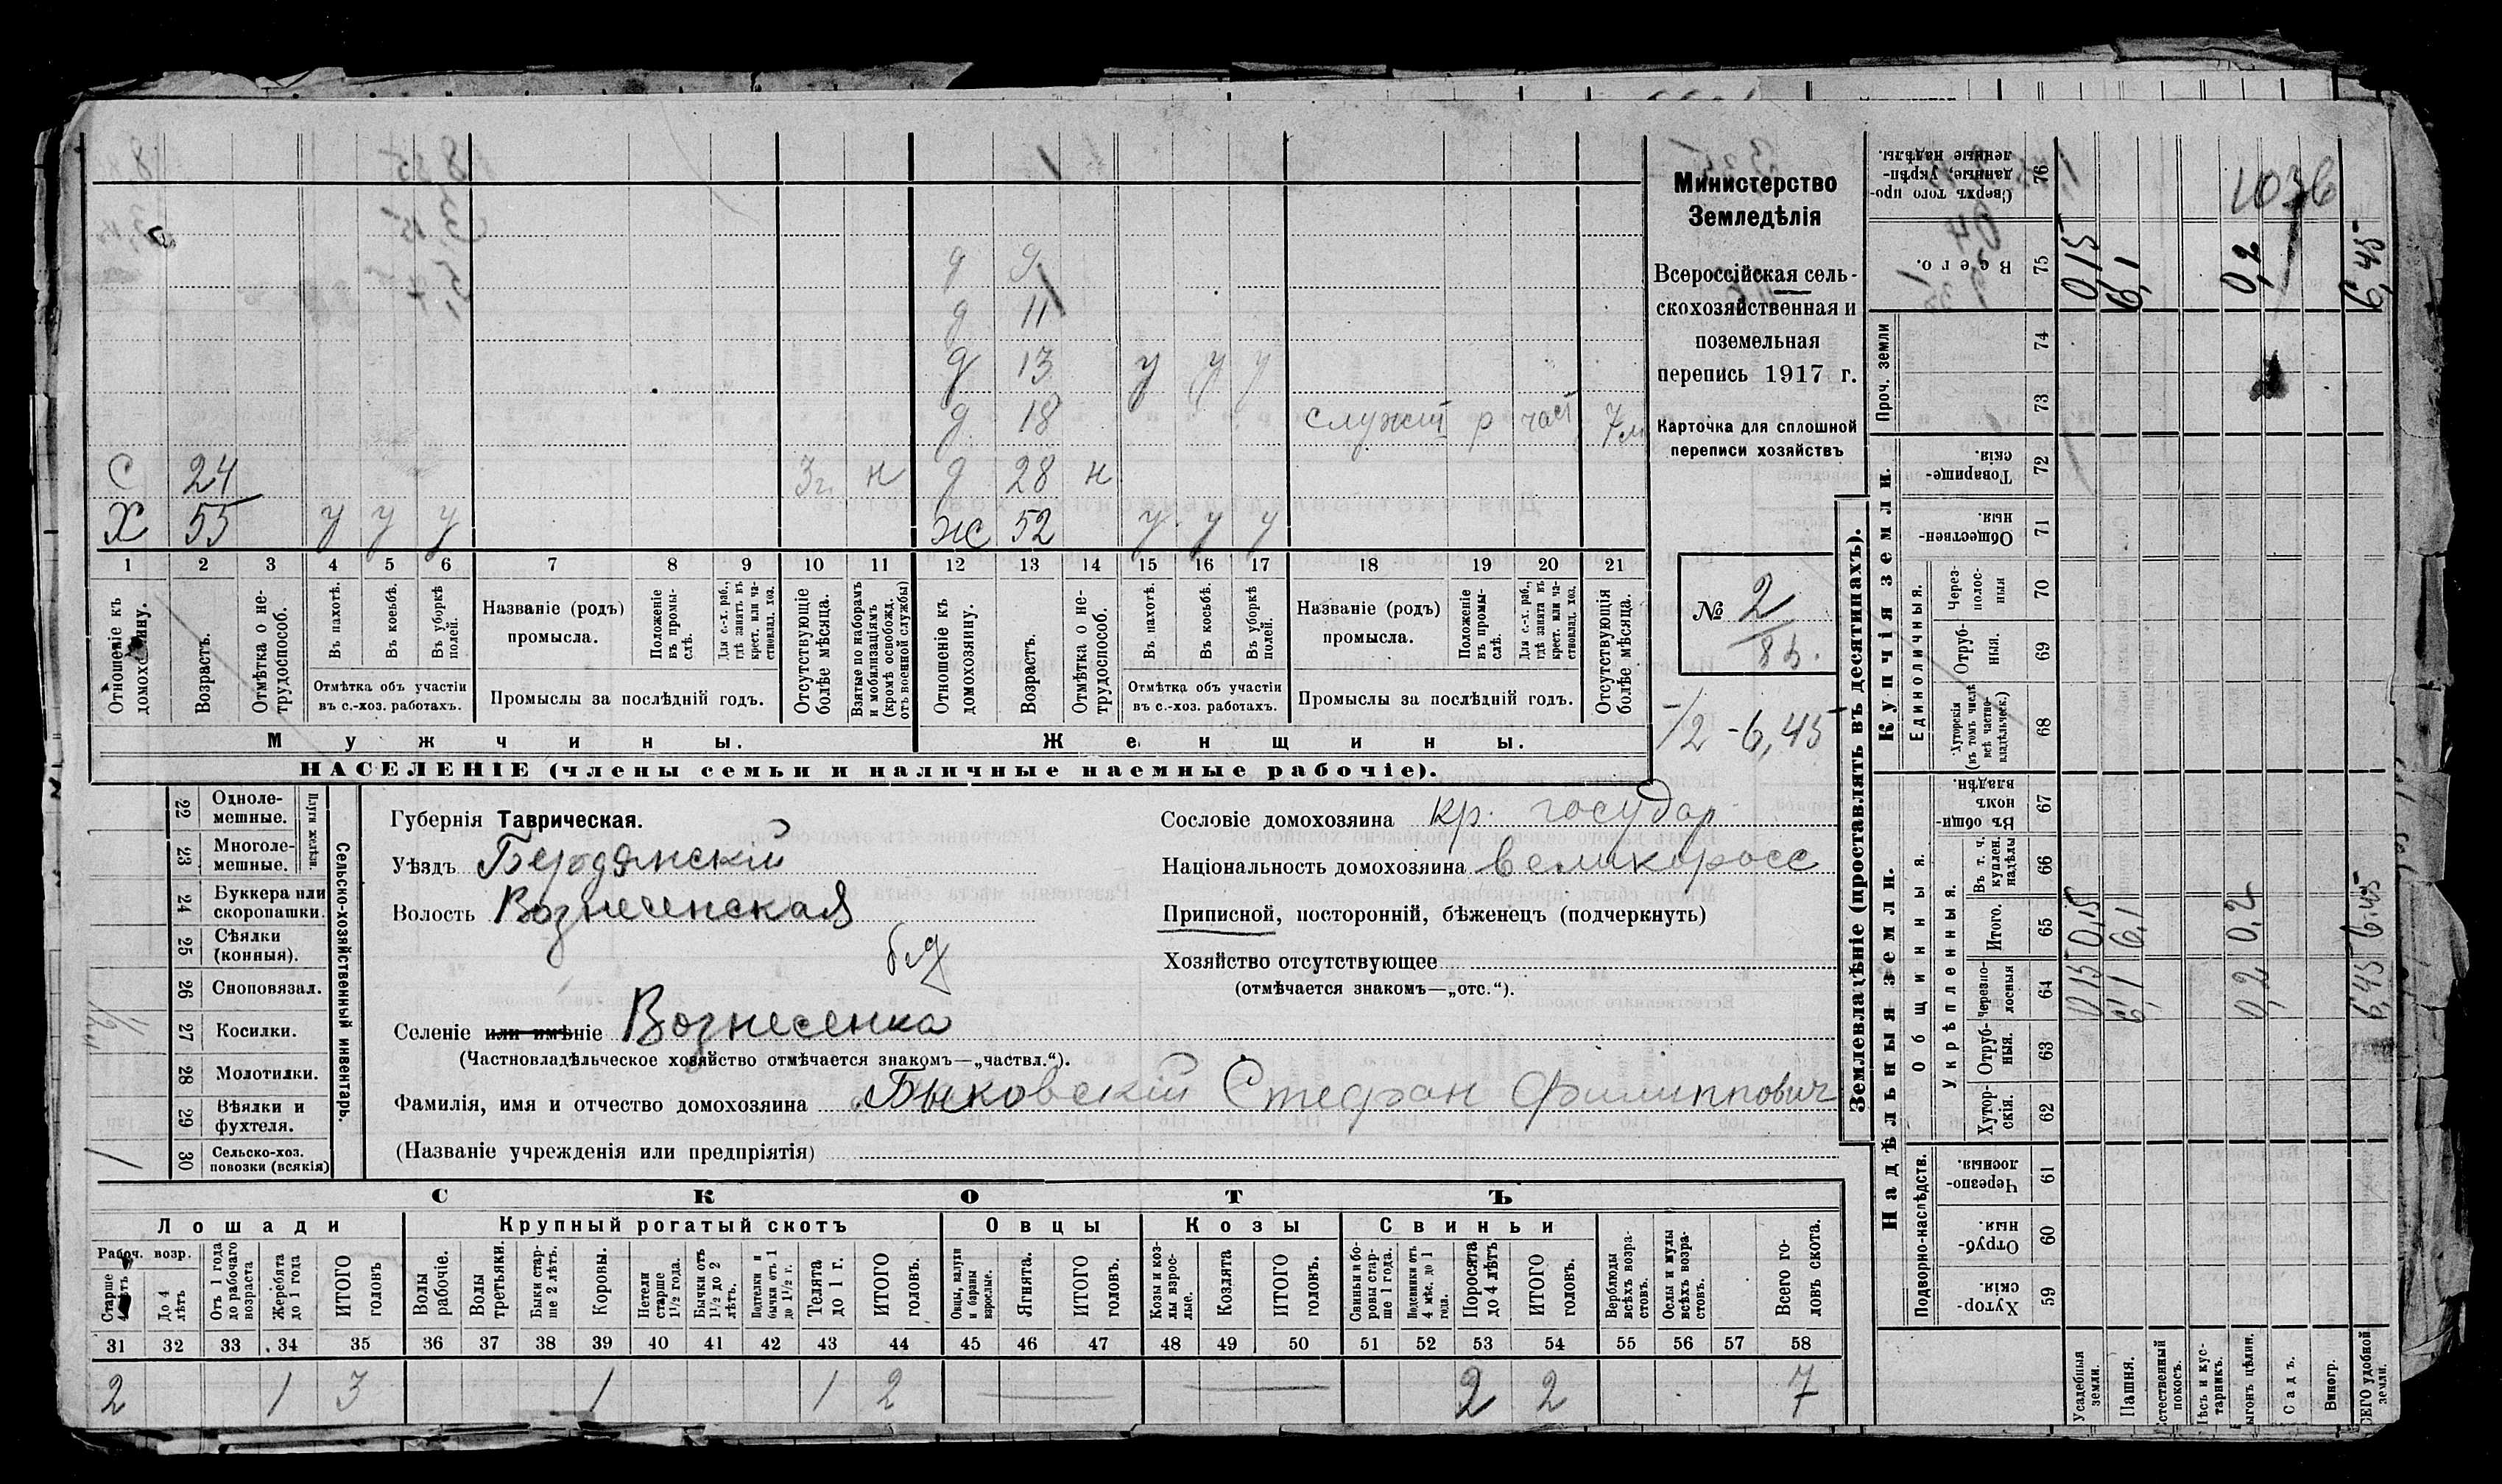 Министерство
Земледѣлія
Всероссійская сель-
скохозяйственная и
поземельная
перепись 1917 г.
Карточка для сплошной
переписи хозяйствъ
№ 2
1/2 - 6,45
д 9
д 11
д 13 у у у
д 18 служит 7 м
С 24 3 г. н д 28 н
Х 55 у у у ж 52 у у у
1 2 3 4 5 6 7 8 9 10 11 12 13 14 15 16 17 18 19 20 21
Отношеніе къ домохозяину.
Возрастъ.
Отмѣтка о не-трудоспособ.
Въ пахотѣ.
Въ косьбѣ.
Въ уборкѣ полей.
Отмѣтка объ участіи
въ с.-хоз. работахъ.
Названіе (родъ)
промысла.
Положеніе въ промы-слѣ.
Для с.-х. раб., гдѣ занятъ въ крест. или ча-стновлад. хоз.
Промыслы за послѣдній годъ.
Отсутствующіе болѣе мѣсяца.
Взятые по наборамъ и мобилизаціямъ (кромѣ освобожд. отъ военной службы)
Отношеніе къ домохозяину.
Возрастъ.
Отмѣтка о не-трудоспособ.
Въ пахотѣ.
Въ косьбѣ.
Въ уборкѣ полей.
Отмѣтка объ участіи
въ с.-хоз. работахъ.
Названіе (родъ)
промысла.
Положеніе въ промы-слѣ.
Для с.-х. раб., гдѣ занята въ крест. или ча-стновлад. хоз.
Промыслы за послѣдній годъ.
Отсутствующія болѣе мѣсяца.
Мужчины. Женщины.
НАСЕЛЕНІЕ (члены семьи и наличные наемные рабочіе).
Сельско-хозяйственный инвентарь.
Плуги желѣзн.
22 Одноле-мешные.
23 Многоле-мешные.
24 Буккера или скоропашки.
25 Сѣялки (конныя).
26 Сноповязал.
27 Косилки.
28 Молотилки.
29 Вѣялки и фухтеля.
30 Сельско-хоз. повозки (всякія) 1
Губернія Таврическая.
Уѣздъ Бердянскій
Волость Вознесенская
Селеніе или имѣніе Вознесенка
(Частновладѣльческое хозяйство отмѣчается знакомъ—„частвл.“).
Фамилія, имя и отчество домохозяина Быковскій Стефан Филиппович
(Названіе учрежденія или предпріятія)
Сословіе домохозяина кр. государ
Національность домохозяина великоросс
Приписной, посторонній, бѣженецъ (подчеркнуть)
Хозяйство отсутствующее
(отмѣчается знакомъ—„отс.“).
СКОТЪ
Лошади Крупный рогатый скотъ Овцы Козы Свиньи
Рабоч. возр.
Старше 4 лѣтъ
До 4 лѣтъ
Отъ 1 года до рабочаго возраста
Жеребята до 1 года
ИТОГО головъ
Волы рабочіе.
Волы третьяки.
Быки стар-ше 2 лѣтъ.
Коровы.
Нетели старше 1½ года.
Бычки отъ 1½ до 2 лѣтъ.
Подтелки и бычки отъ 1 до 1½ г.
Телята до 1 г.
ИТОГО головъ.
Овцы, валухи и бараны взрослые.
Ягнята.
ИТОГО головъ.
Козы и коз-лы взрос-лые.
Козлята
ИТОГО головъ.
Свиньи и бо-ровы стар-ше 1 года.
Подсвинки отъ 4 мѣс. до 1 года.
Поросята до 4 лѣтъ
ИТОГО головъ.
Верблюды всѣхъ возра-стовъ.
Ослы и мулы всѣхъ возра-стовъ.
Всего го-ловъ скота.
31 32 33 34 35 36 37 38 39 40 41 42 43 44 45 46 47 48 49 50 51 52 53 54 55 56 57 58
2 1 3 1 1 2 2 2 7
Землевладѣніе (проставлять въ десятинахъ).
Надѣльныя земли. Купчія земли. Проч. земли
Подворно-наслѣдств.
Общинныя.
Укрѣпленныя.
Единоличныя.
59 Хутор-скія.
60 Отруб-ныя.
61 Черезпо-лосныя.
62 Хутор-скія.
63 Отруб-ныя.
64 Черезпо-лосныя
65 Итого.
66 Въ т. ч. куплен. надѣлы
67 Въ общи-номъ владѣн.
68 Хуторскія (въ томъ числѣ всѣ частно-владѣльческ.)
69 Отруб-ныя.
70 Через-полос-ныя
71 Обществен-ныя.
72 Товарище-скія.
73
74
75 Всего.
76 Сверхъ того про-данные, укрѣп-ленные надѣлы.
Усадебныя земли. 0,15 0,15 0,15
Пашня. 6,1 6,1 6,1
Естественный покосъ.
Лѣсъ и кус-тарникъ.
Выгонъ цѣлин. 0,2 0,2 0,2
Садъ.
Виногр.
ВСЕГО удобной земли. 6,45 6.45 6,45
1036